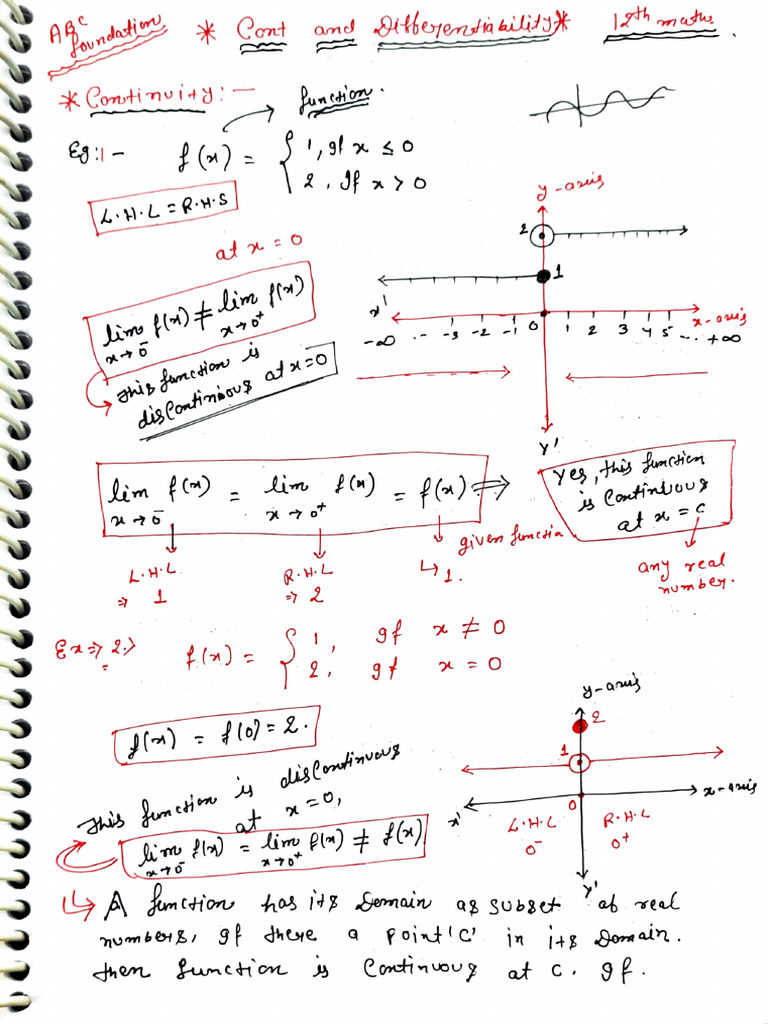 ABC foundation * Cont and Differentiability * 12th maths.
* Continuity:- function.
Eg:1- f(x) = { 1, If x ≤ 0
2, If x > 0
L.H.L = R.H.S
at x = 0
lim f(x) ≠ lim f(x)
x→0⁻ x→0⁺
This function is
discontinuous at x=0
y-axis
2
1
x'
-∞ ... -3 -2 -1 0 1 2 3 4 5 ... +∞
x-axis
Y'
lim f(x) = lim f(x) = f(x) ⇒
x→0⁻ x→0⁺
Yes, this function
is continuous
at x = c
given functio
L.H.L R.H.L ↳ 1.
⇒ 1 ⇒ 2
any real
number.
Ex⇒2.> f(x) = { 1, If x ≠ 0
2, If x = 0
f(x) = f(0) = 2.
This function is discontinuous
at x = 0,
lim f(x) = lim f(x) ≠ f(x)
x→0⁻ x→0⁺
y-axis
2
1
0
x' x-axis
L.H.L R.H.L
0⁻ 0⁺
Y'
↳ A function has its Domain as subset of real
numbers, If there a point 'C' in its Domain.
then function is continuous at c. If.